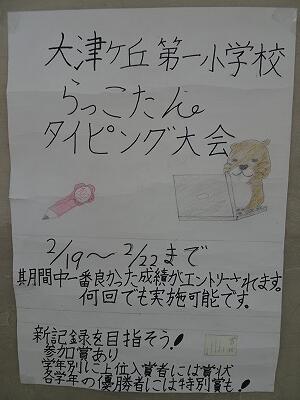 大津ケ丘第一小学校
らっこたん
タイピング大会
2/19～2/22まで
其期間中一番良かった成績がエントリーされます。
何回でも実施可能です。
新記録を目指そう!
参加賞あり
学年別に上位入賞者には賞状
各学年の優勝者には特別賞も!